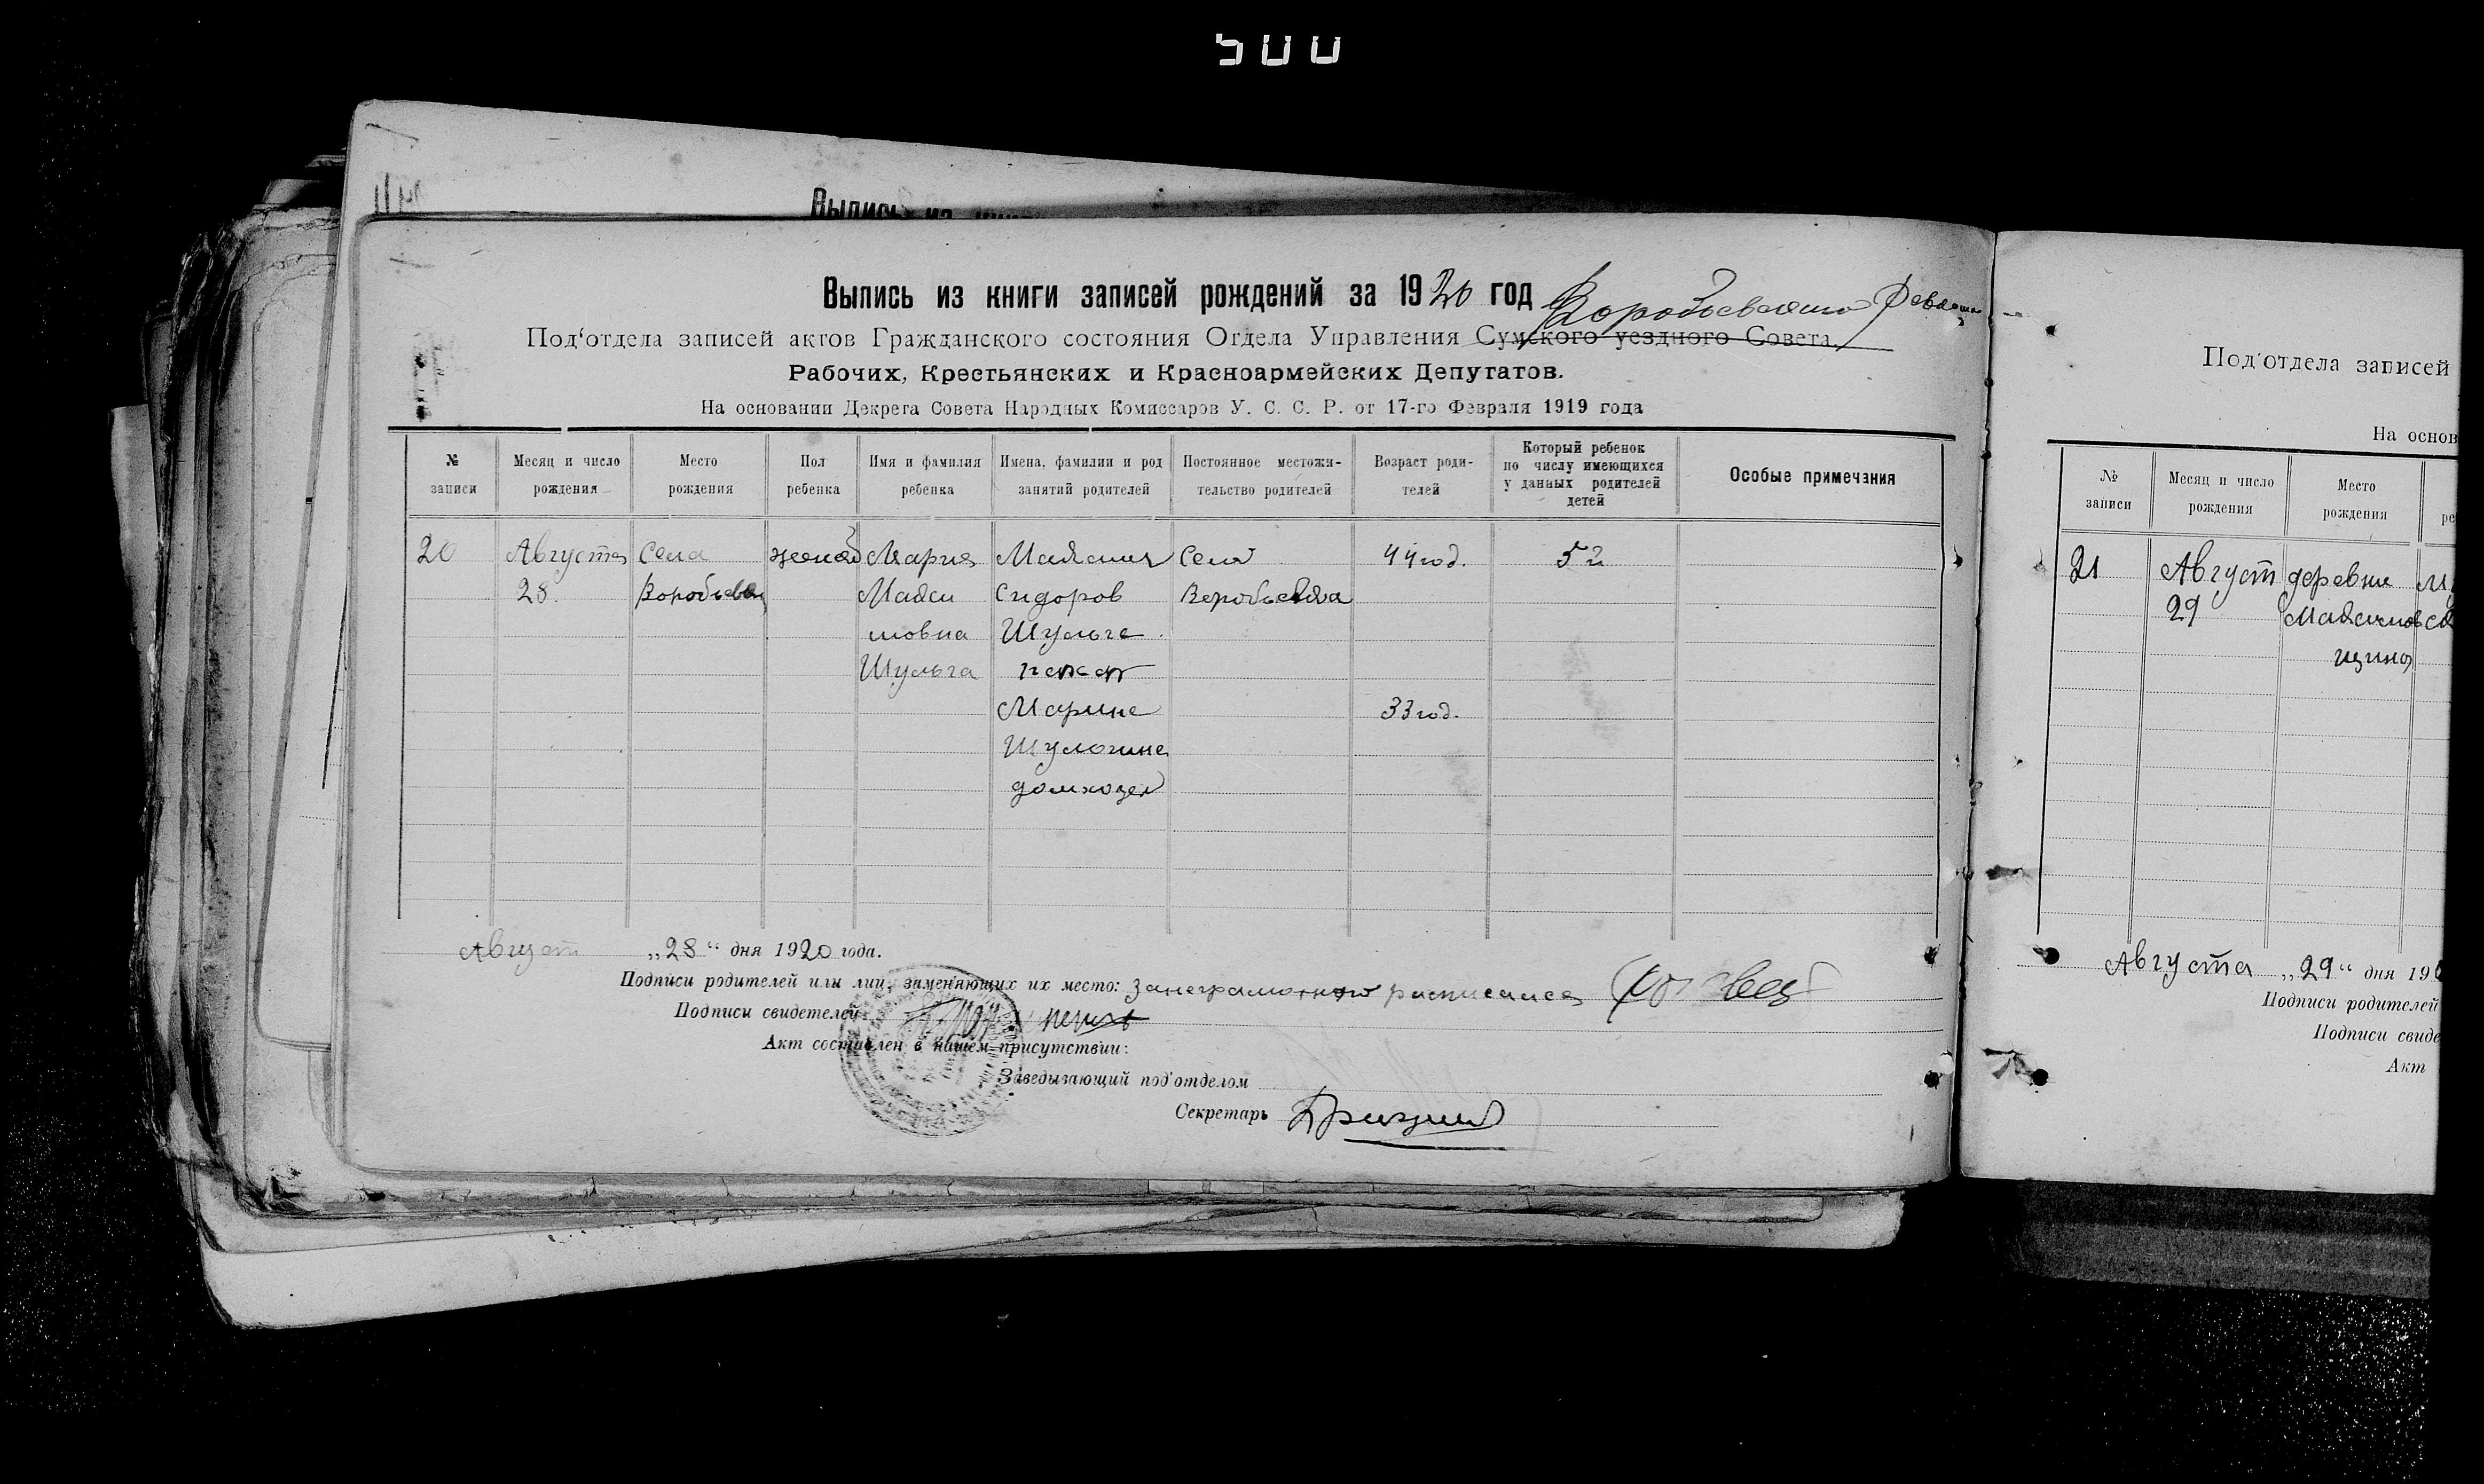 500
Выпись из
Выпись из книги записей рождений за 1920 год Воробьевского
Под'отдела записей актов Гражданского состояния Отдела Управления Сумского уездного Совета
Рабочих, Крестьянских и Красноармейских Депутатов.
На основании Декрета Совета Народных Комиссаров У. С. С. Р. от 17-го Февраля 1919 года
№ записи
Месяц и число рождения
Место рождения
Пол ребенка
Имя и фамилия ребенка
Имена, фамилии и род занятий родителей
Постоянное местожительство родителей
Возраст родителей
Который ребенок по числу имеющихся у данных родителей детей
Особые примечания
20 Августа Села женск Мария Максим Село 44 год. 5й
28. Воробьевка Макси Сидоров Воробьевка
мовна Шульга
Шульга пахар
Марина 33 год.
Шульгина
домхозяй
Август „28“ дня 1920 года.
Подписи родителей или лиц, заменяющих их место: За неграмотного расписался
Подписи свидетелей:
Акт составлен в нашем присутствии:
Заведывающий под'отделом
Секретарь
Под'отдела записей
На основ
№ записи
Месяц и число рождения
Место рождения
ре
21 Август деревня
29 Максимов
щина
Августа „29“ дня 19
Подписи родителей
Подписи свиде
Акт